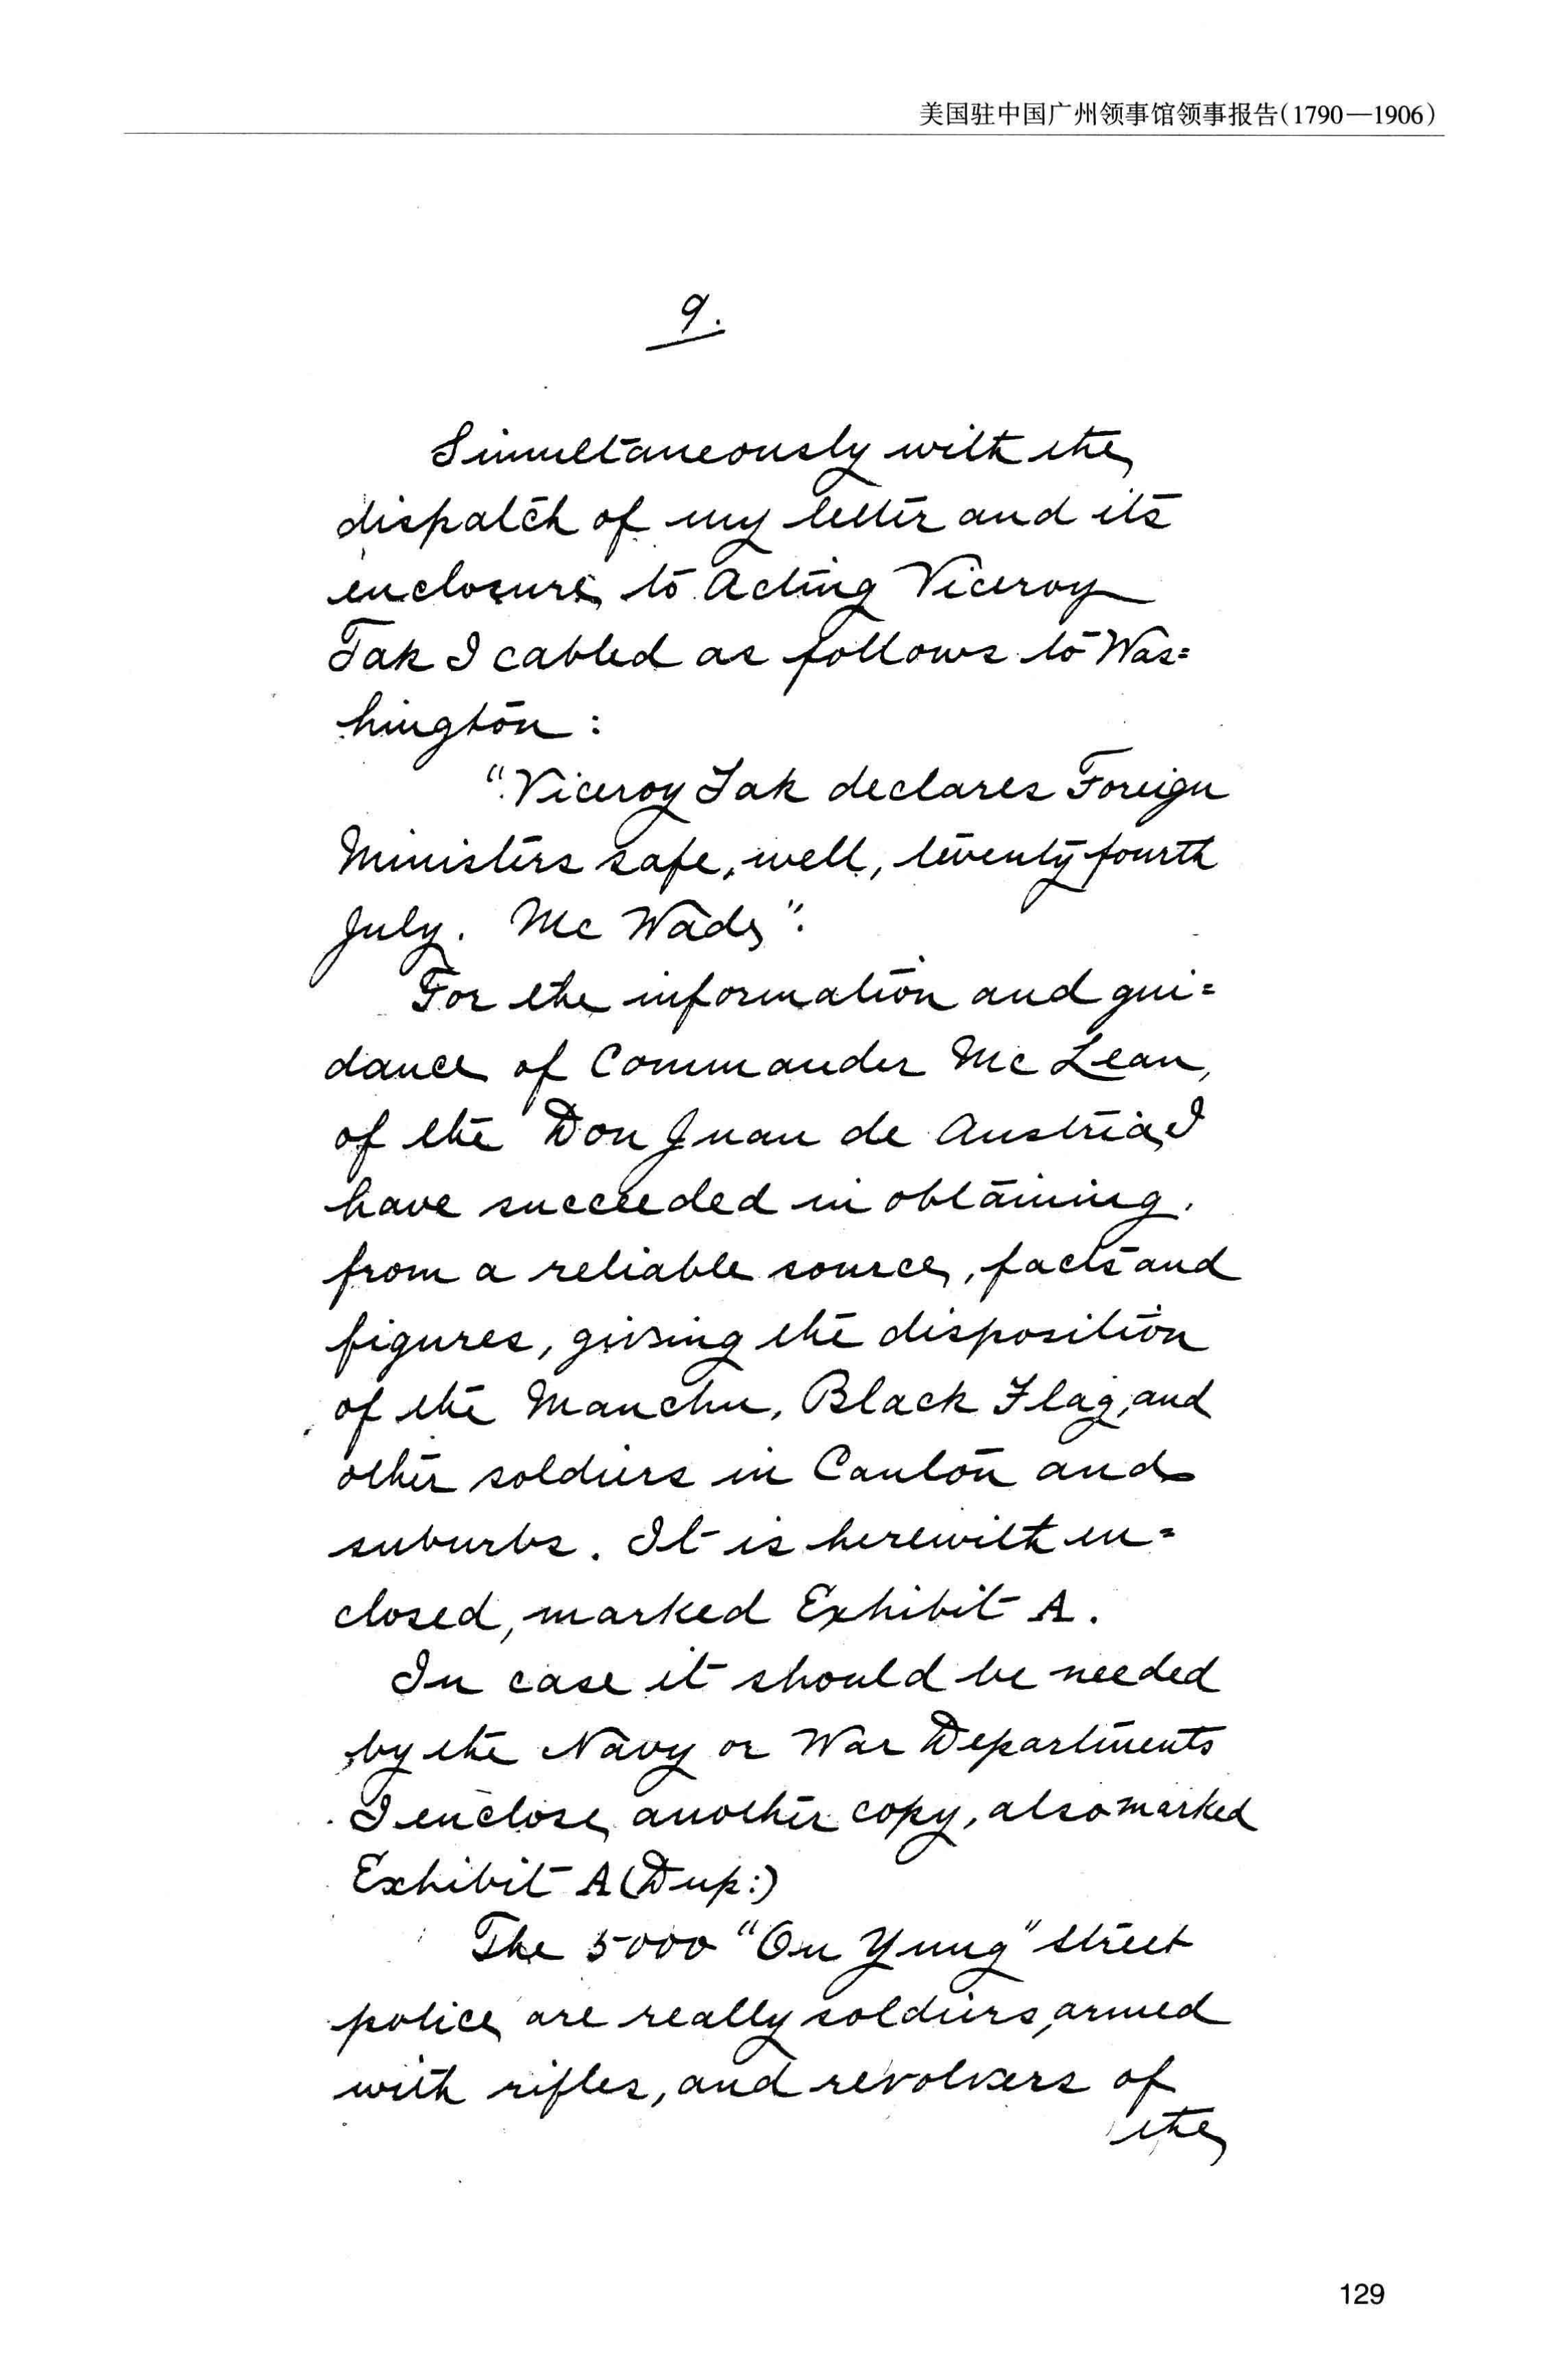 美国驻中国广州领事馆领事报告(1790—1906)
9.
Simultaneously with the
dispatch of my letter and its
enclosure to Acting Viceroy
Tak I cabled as follows to Was=
hington:
"Viceroy Tak declares Foreign
Ministers safe, well, twenty fourth
July. Mc Wade".
For the information and gui=
dance of Commander Mc Lean,
of the Don Juan de Austria, I
have succeeded in obtaining,
from a reliable source, facts and
figures, giving the disposition
of the Manchu, Black Flag, and
other soldiers in Canton and
suburbs. It is herewith en=
closed, marked Exhibit A.
In case it should be needed
by the Navy or War Departments
I enclose another copy, also marked
Exhibit A (Dup:)
The 5000 "On Yung" street
police are really soldiers, armed
with rifles, and revolvers of
the
129